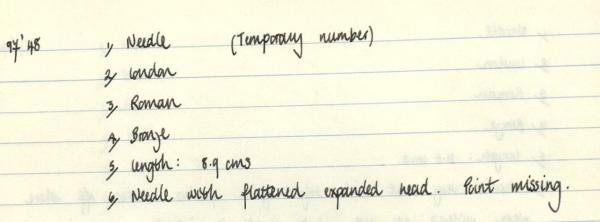 97'48 1, Needle (Temporary number)
2, London
3, Roman
4, Bronze
5, length: 8.9 cms
6, Needle with flattened expanded head. Point missing.